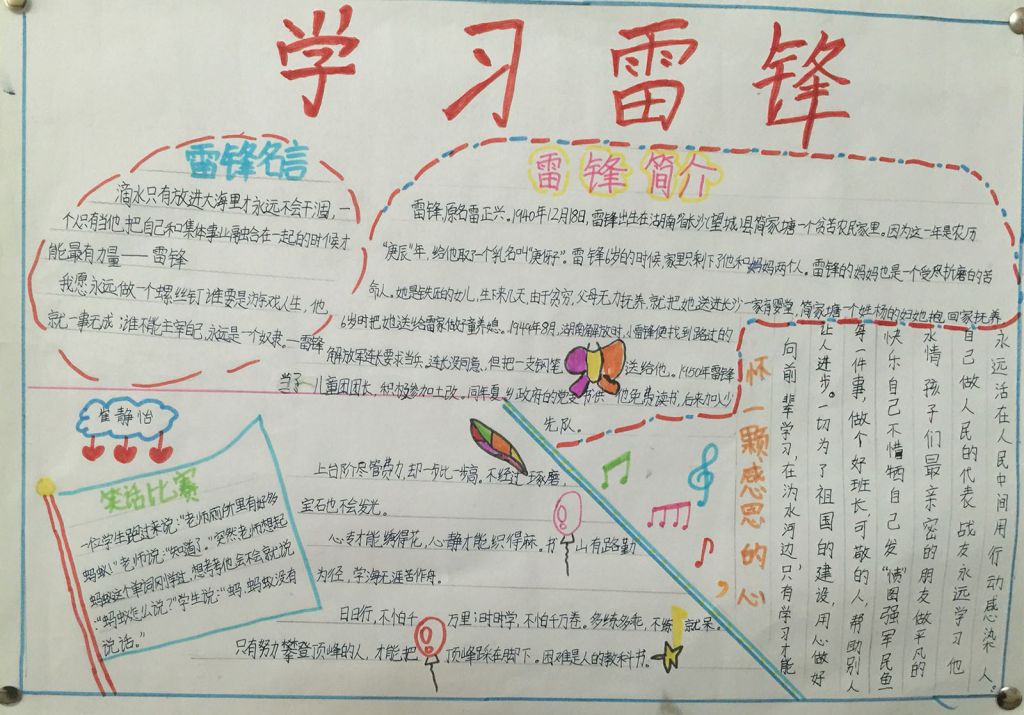 学习雷锋
雷锋名言
滴水只有放进大海里才永远不会干涸，一
个人只有当他把自己和集体事业融合在一起的时候才
能最有力量——雷锋
我愿永远做一个螺丝钉谁要是游戏人生，他
就一事无成；谁不能主宰自己，永远是一个奴隶。—雷锋
雷锋简介
雷锋，原名雷正兴。1940年12月18日，雷锋出生在湖南省长沙望城县简家塘一个贫苦农民家里。因为这一年是农历
“庚辰”年，给他取了个乳名叫“庚伢子”。雷锋6岁的时候，家里只剩下了他和妈妈两个人。雷锋的妈妈也是一个受尽折磨的苦
命人。她是铁匠的女儿，生下来几天，由于贫穷，父母无力抚养，就把她送进长沙一家育婴堂，简家塘一个姓杨的妇她抱回家抚养
6岁时把她送给雷家做童养媳。1949年8月，湖南解放时，小雷锋便找到路过的
解放军连长要求当兵，连长没同意，但把一支钢笔送给他。1950年雷锋
当了儿童团团长，积极参加土改。同年夏，乡政府的党支书供他免费读书，后来加入少
先队。
崔静怡
笑话比赛
一位学生跑过来说：“老师厕所里有好多
蚂蚁！”老师说：“知道了。”突然老师想起
蚂蚁这个单词刚学过，想考考他会不会就说
：“蚂蚁怎么说？”学生说：“蚂，蚂蚁没有
说话。”
上台阶尽管费力，却一步比一步高。不经过琢磨，
宝石也不会发光。
心专才能绣得花，心静才能织得麻。书山有路勤
为径，学海无涯苦作舟。
日日行，不怕千万里；时时学，不怕千万卷。多练多乖，不练就呆。
只有努力攀登顶峰的人，才能把顶峰踩在脚下。困难是人的教科书。
怀一颗感恩的心
永远活在人民中间用行动感染人。
自己做人民的代表战友永远学习他
永情孩子们最亲密的朋友做平凡的
快乐自己不惜牺自己发“愤”图强军民鱼
每一件事，做个好班长，可敬的人，帮助别人
让人进步。一切为了祖国的建设，用心做好
向前辈学习，在沩水河边，只有学习才能